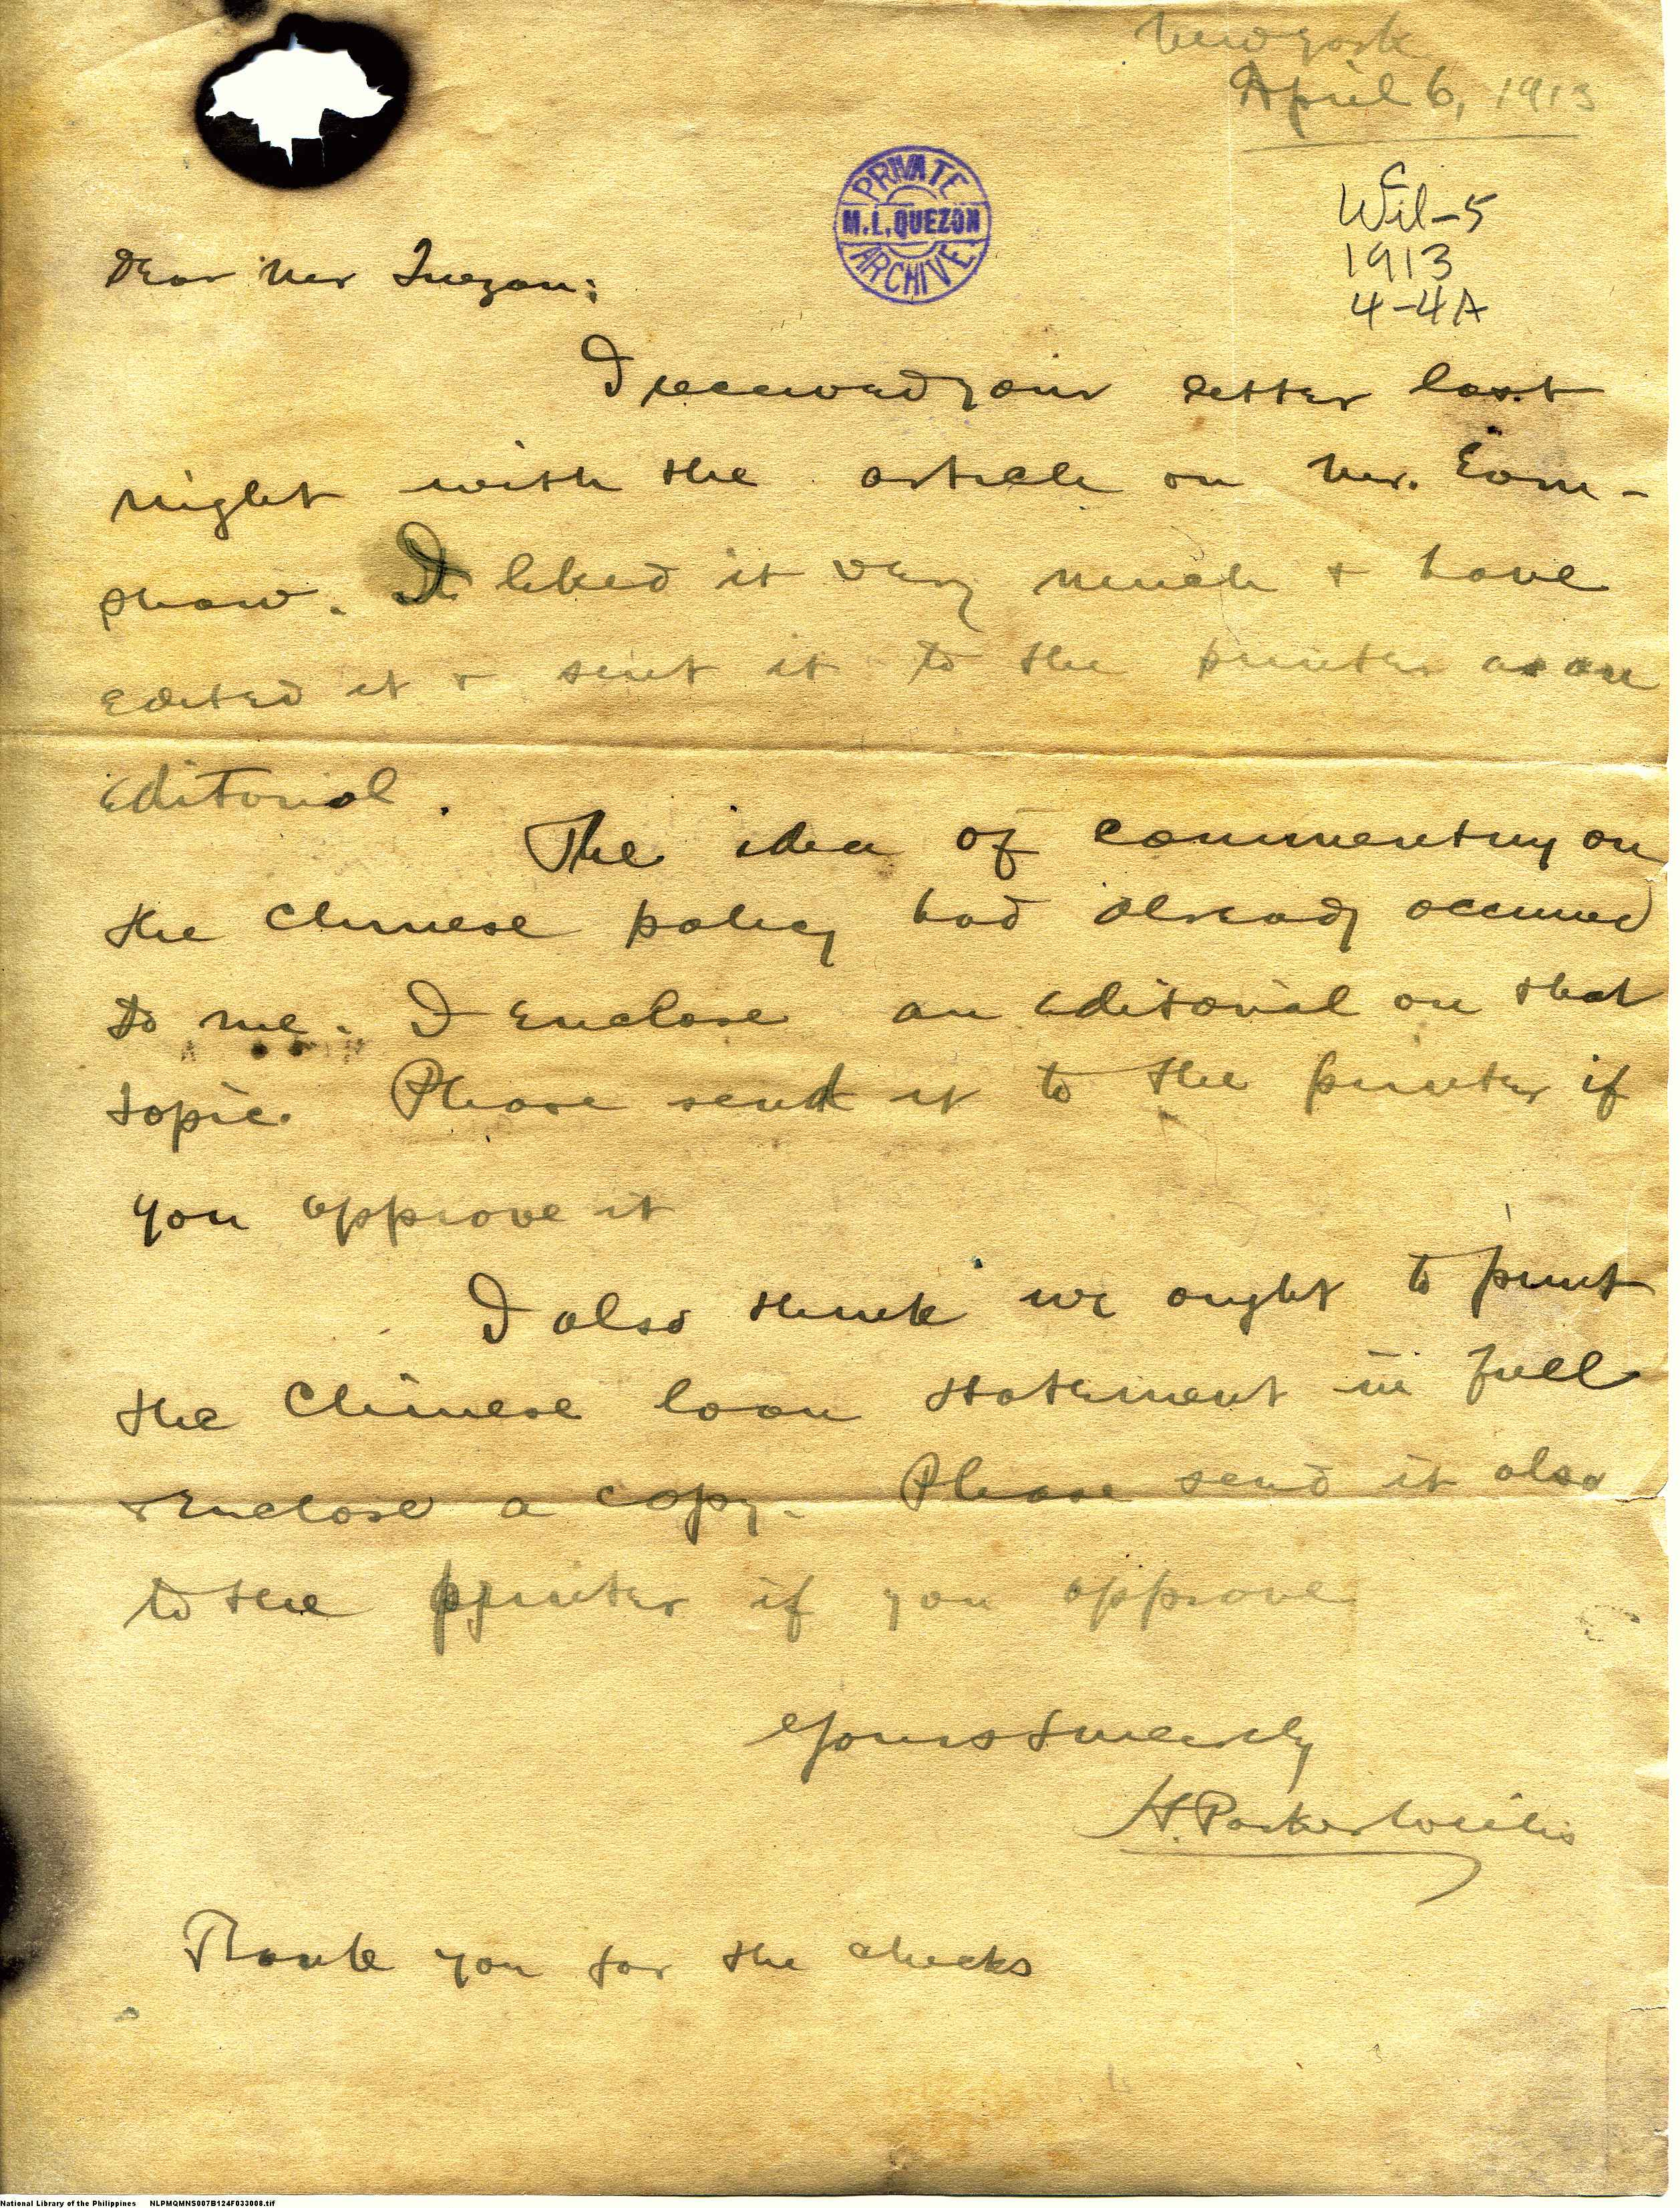 New York
April 6, 1913
PRIVATE
M.L. QUEZON
ARCHIVE
C
Wil-5
1913
4-4A
Dear Mr Quezon:
I received your letter last
night with the article on Mr. Earn-
shaw. I liked it very much + have
edited it + sent it to the printer as an
editorial.
The idea of commenting on
the Chinese policy had already occurred
to me. I enclose an editorial on that
topic. Please send it to the printer if
you approve it
I also think we ought to print
the Chinese loan statement in full
+ enclose a copy. Please send it also
to the printer if you approve
Yours sincerely
H. Parker Willis
Thank you for the checks
National Library of the Philippines NLPMQMNS007B124F033008.tif